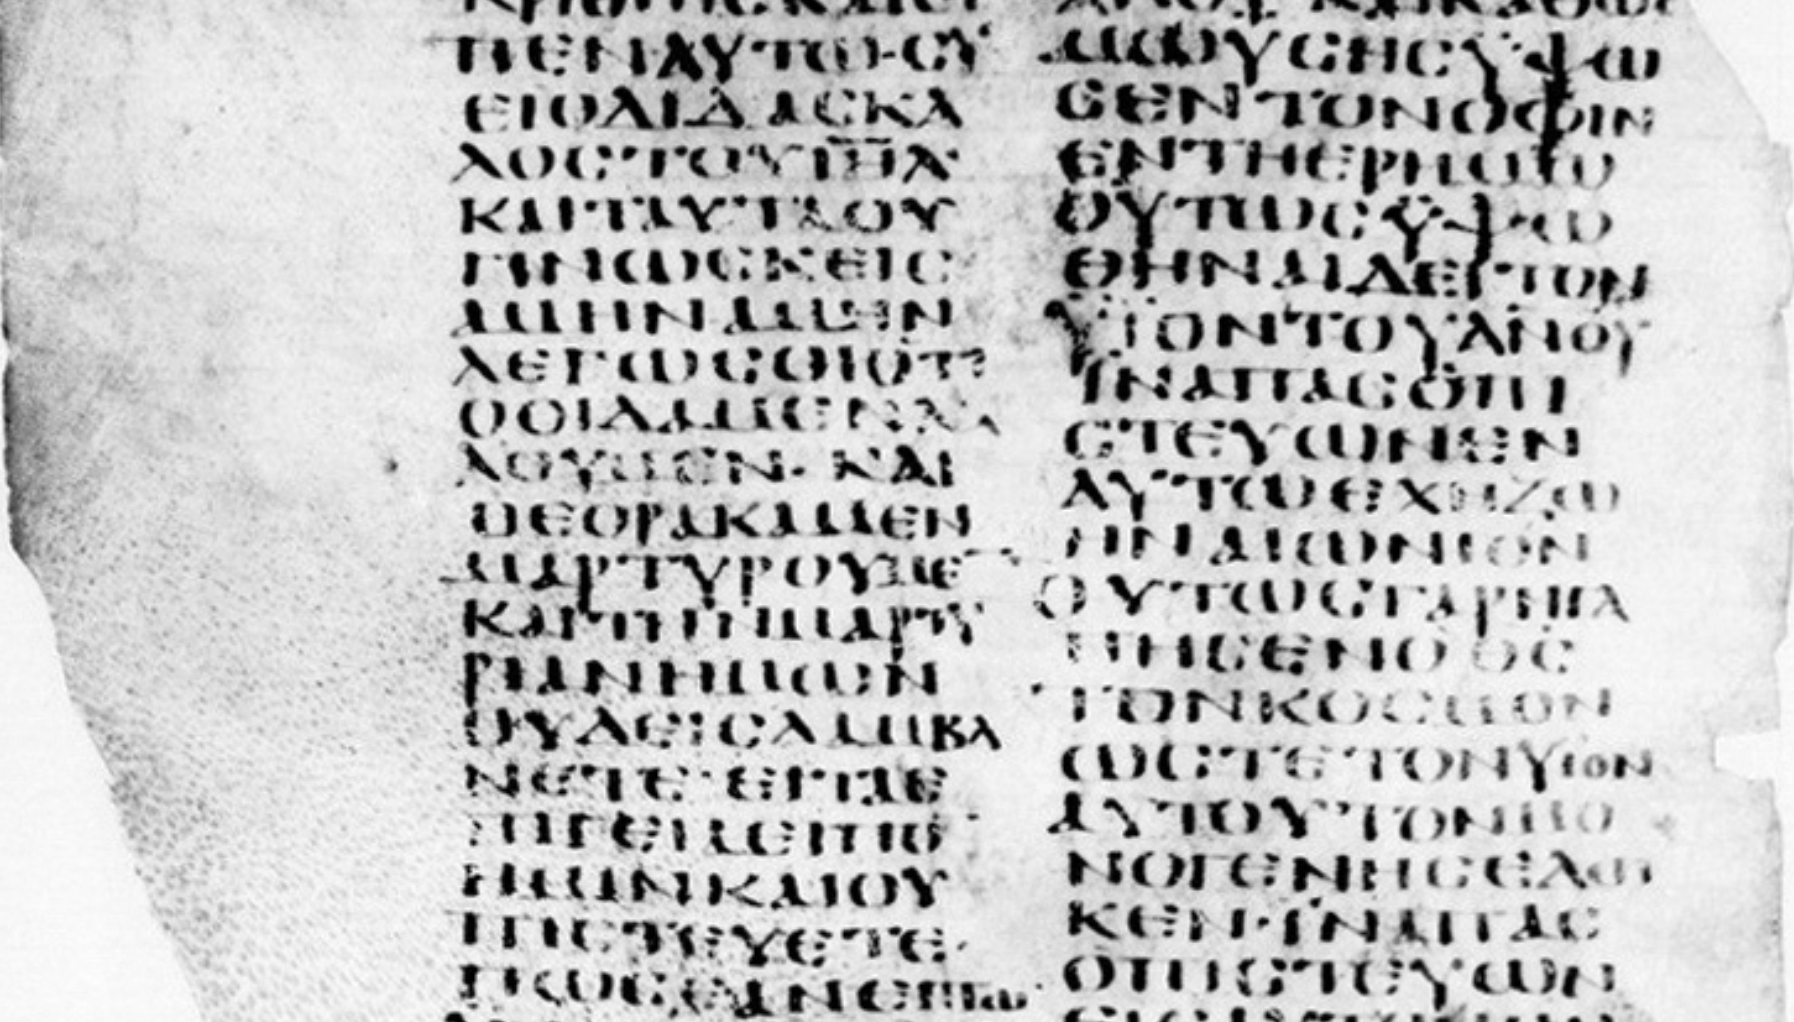 ΠΕΝΑΥΤΩ·CΥ
ΕΙΟΔΙΔΑCΚΑ
ΛΟCΤΟΥΙΗΛ·
ΚΑΙΤΑΥΤΑΟΥ
ΓΙΝΩCΚΕΙC
ΑΜΗΝΑΜΗΝ
ΛΕΓΩCΟΙΟΤΙ
ΟΟΙΔΑΜΕΝΛΑ
ΛΟΥΜΕΝ·ΚΑΙ
ΟΕΟΡΑΚΑΜΕΝ
ΜΑΡΤΥΡΟΥΜΕ
ΚΑΙΤΗΝΜΑΡΤΥ
ΡΙΑΝΗΜΩΝ
ΟΥΔΕΙCΛΑΜΒΑ
ΝΕΤΕ·ΕΙΤΑΕ
ΠΙΓΕΙΑΕΙΠΟ
ΗΜΙΝΚΑΙΟΥ
ΠΙCΤΕΥΕΤΕ·
ΠΩCΕΑΝΕΙΠΩ
ΜΩΥCΗCΥΨΩ
CΕΝΤΟΝΟΦΙΝ
ΕΝΤΗΕΡΗΜΩ
ΟΥΤΩCΫΨΩ
ΘΗΝΑΙΔΕΙΤΟΝ
ΥΙΟΝΤΟΥΑΝΟΥ
ΙΝΑΠΑCΟΠΙ
CΤΕΥΩΝΕΝ
ΑΥΤΩΕΧΗΖΩ
ΗΝΑΙΩΝΙΟΝ
ΟΥΤΩCΓΑΡΗΓΑ
ΠΗCΕΝΟΘC
ΤΟΝΚΟCΜΟΝ
ΩCΤΕΤΟΝΥΙΟΝ
ΑΥΤΟΥΤΟΝΜΟ
ΝΟΓΕΝΗCΕΔΩ
ΚΕΝ·ΙΝΑΠΑC
ΟΠΙCΤΕΥΩΝ